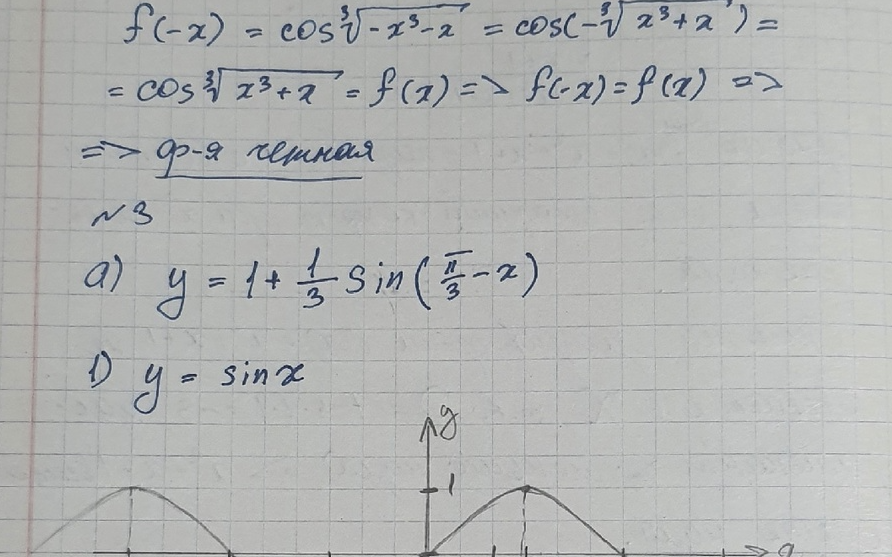 f(-x) = cos∛(-x³-x) = cos(-∛(x³+x)) =
= cos∛(x³+x) = f(x) => f(-x) = f(x) =>
=> ф-я четная
№3
а) y = 1 + 1/3 sin(π/3 - x)
1) y = sin x
y
1